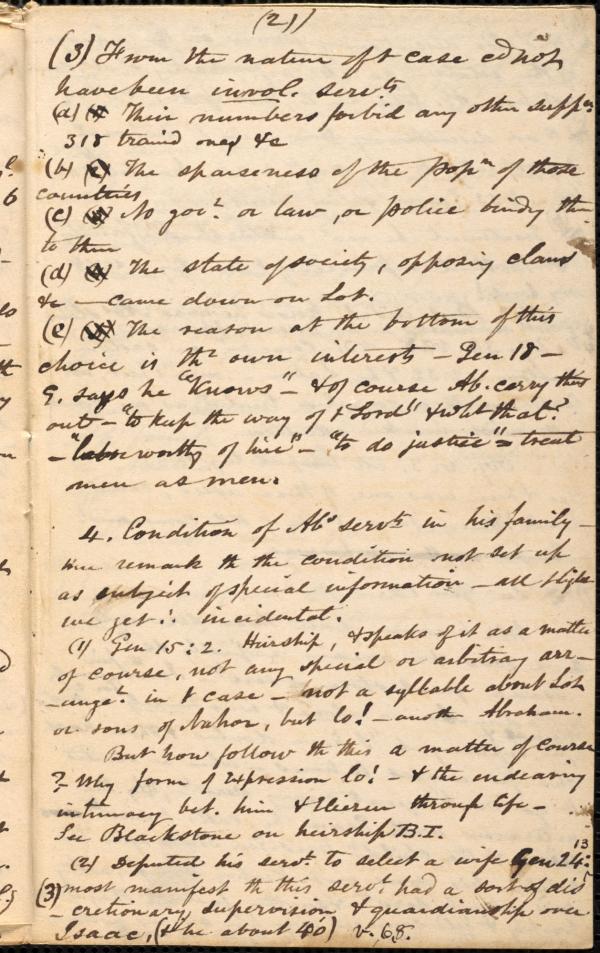 (21)
(3) From the nature of t case cd not
have been invol. servts
(a) Their numbers forbid any other suppn
318 traind ones &c
(b) The sparseness of the popn of those
countries
(c) No govt. or law, or police bindg thm
to thm
(d) The state of society, opposing clans
&c — came down on Lot.
(e) The reason at the bottom of this
choice is thr own interests — Gen 18 —
G. says he "Knows" — & of course Ab. carry this
out — "to keep the way of t Lord" & wht that?
— "labr worthy of hire" — "to do justice" = treat
men as men.
4. Condition of Abs servts in his family —
remark th the condition not set up
as subject of special information — all t light
we get :. incidental.
(1) Gen 15:2. Heirship, & speaks of it as a matter
of course, not any special or arbitrary arr-
-angt. in t case — not a syllable about Lot
or sons of Nahor, but lo! — anoth Abraham.
But how follow th this a matter of course
? Why form of expression lo! — & the endearing
intimacy bet. him & Eliezer through life —
See Blackstone on heirship B.I.
(2) Deputed his servt to select a wife Gen 24:
13
(3) most manifest th this servt. had a sort of dis
-cretionary supervision & guardianship over
Isaac, (& he about 40) v. 6.8.